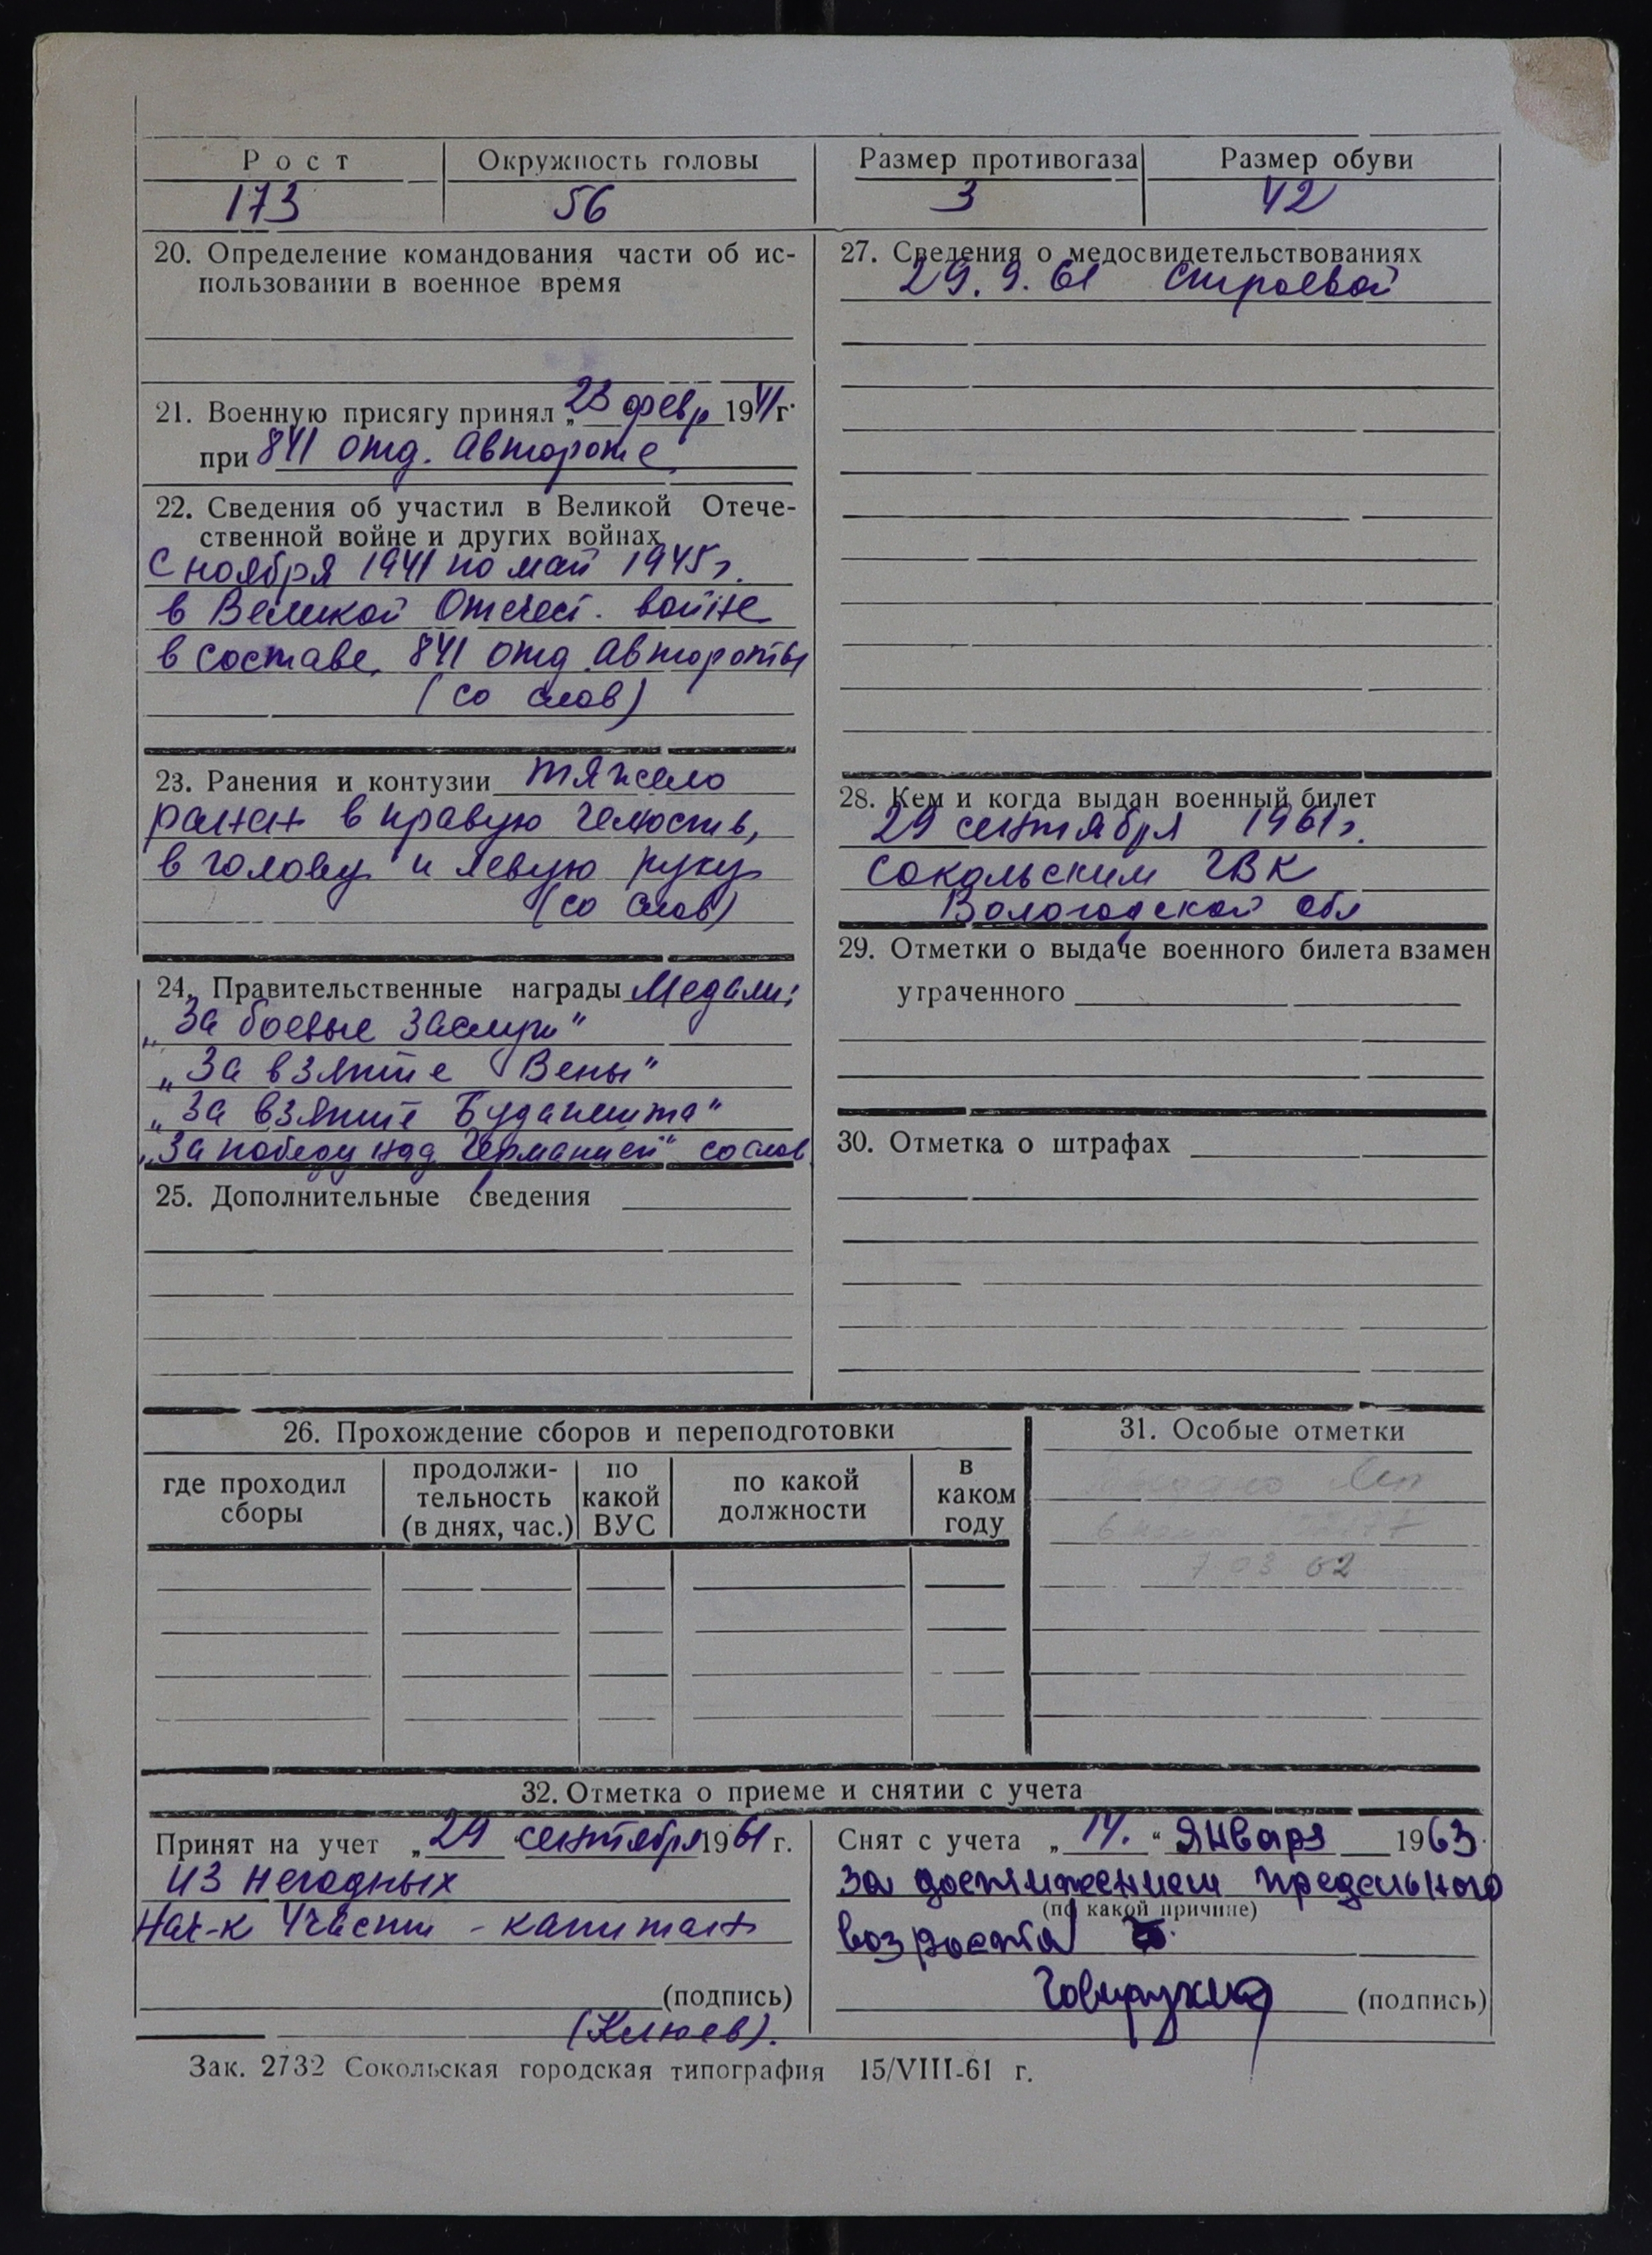 Рост Окружность головы Размер противогаза Размер обуви
173 56 3 42
20. Определение командования части об ис-
пользовании в военное время
21. Военную присягу принял „ 23 февр 1941 г.
при 841 отд. автороте
22. Сведения об участил в Великой Отече-
ственной войне и других войнах
С ноября 1941 по май 1945 г.
в Великой Отечест. войне
в составе 841 отд автороты
(со слов)
23. Ранения и контузии тяжело
ранен в правую челюсть,
в голову и левую руку
(со слов)
24. Правительственные награды Медали:
„За боевые заслуги"
„За взятие Вены"
„За взятие Будапешта"
„За победу над Германией" со слов
25. Дополнительные сведения
27. Сведения о медосвидетельствованиях
29.9.61 строевой
28. Кем и когда выдан военный билет
29 сентября 1961 г.
Сокольским ГВК
Вологодской обл
29. Отметки о выдаче военного билета взамен
утраченного
30. Отметка о штрафах
26. Прохождение сборов и переподготовки
где проходил сборы
продолжи-
тельность
(в днях, час.)
по
какой
ВУС
по какой
должности
в
каком
году
31. Особые отметки
7 03 62
32. Отметка о приеме и снятии с учета
Принят на учет „ 29 сентября 1961 г.
из негодных
Нач-к 4 части - капитан
(подпись)
(Клюев).
Снят с учета „ 14. " Января 1963
за достижением предельного
(по какой причине)
возраста
(подпись)
Зак. 2732 Сокольская городская типография 15/VIII-61 г.